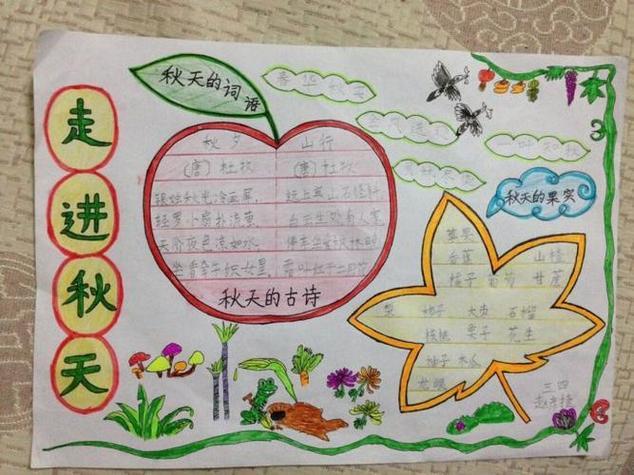 走进秋天
秋天的词语
春华秋实
一叶知秋
秋夕
(唐)杜牧
银烛秋光冷画屏,
轻罗小扇扑流萤
天阶夜色凉如水
坐看牵牛织女星
山行
(唐)杜牧
远上寒山石径斜
白云生处有人家
停车坐爱枫林晚
霜叶红于二月花
秋天的古诗
秋天的果实
苹果
香蕉 山楂
橘子 葡萄 甘蔗
梨 柿子 大枣 石榴
核桃 栗子 花生
柚子 木瓜
龙眼
三四